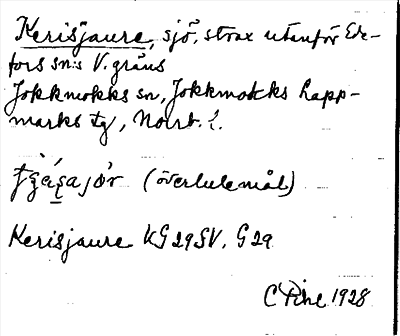 Kerisjaure, sjö, strax utanför Ede-
fors sn:s V. gräns
Jokkmokks sn, Jokkmokks lapp-
marks tg, Norrb. l.
(överlulemål)
Kerisjaure KG 29 SV. G 29
C Pihl 1928